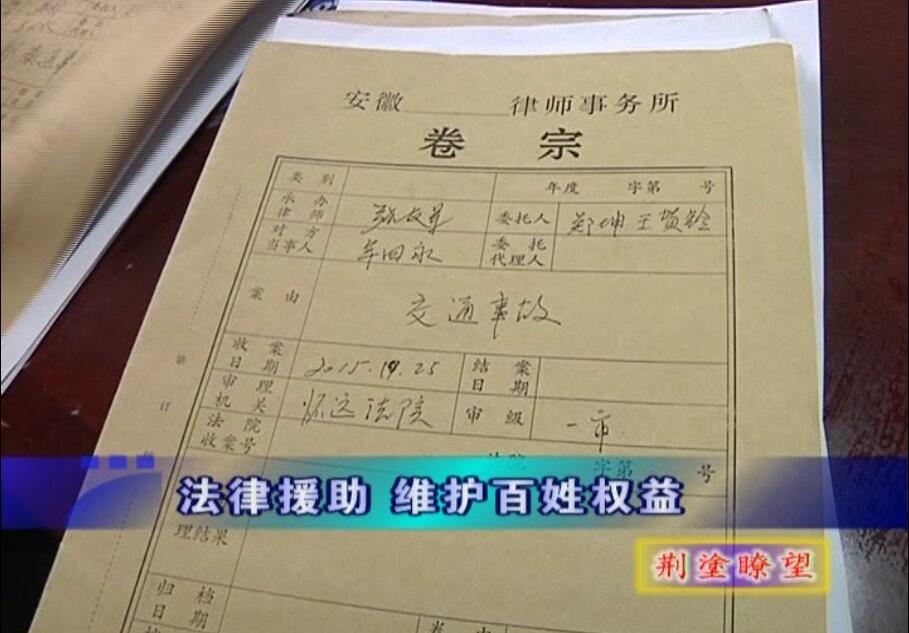 安徽______律师事务所
卷 宗
类 别 年度 字第 号
承办律师 委托人 郑坤
对方当事人 牟四永 委托代理人
案 由 交通事故
收案日期 2015. .25 结案日期
审理机关 怀远法院 审 级 一审
法院收案号 字第 号
法律援助 维护百姓权益
理结果
荆塗瞭望
归档日期
装
订